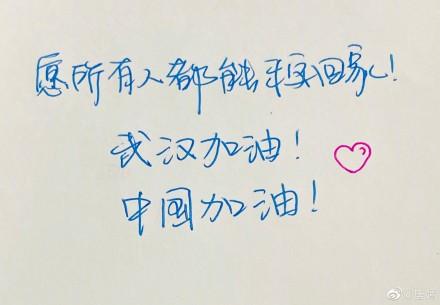 愿所有人都能平安回家！
武汉加油！
中國加油！